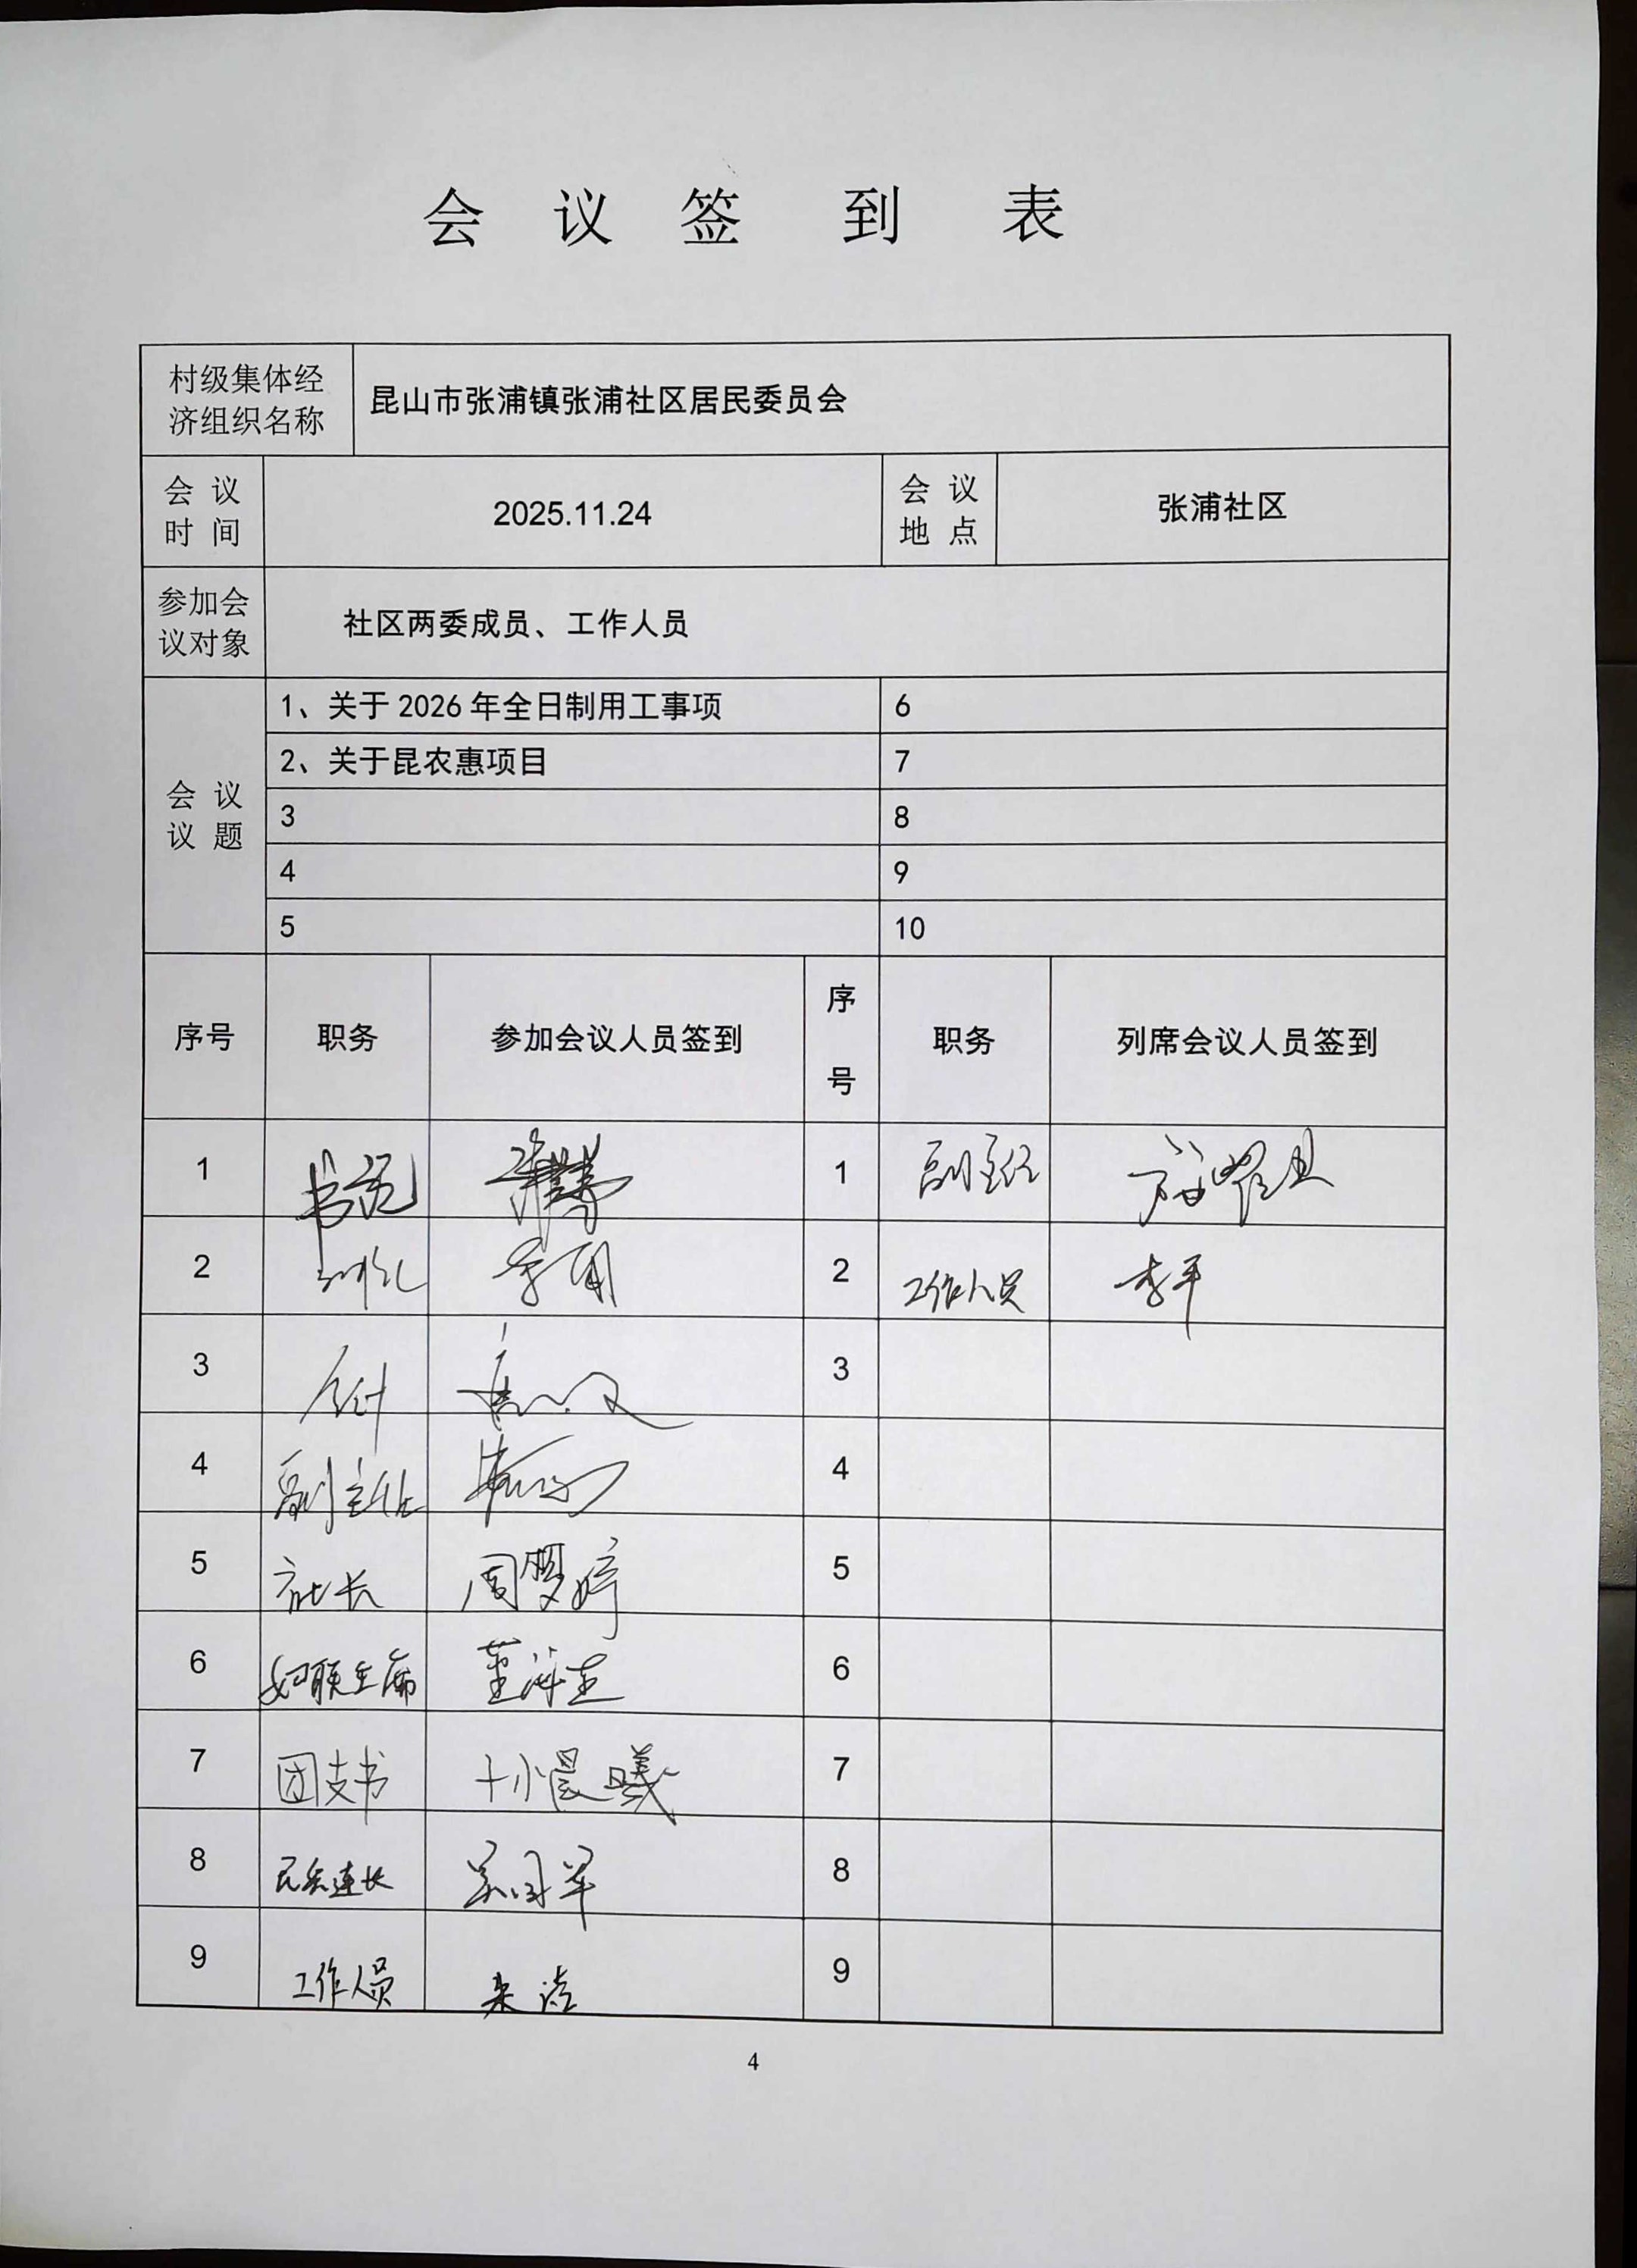 会 议 签 到 表
村级集体经
济组织名称
昆山市张浦镇张浦社区居民委员会
会 议
时 间
2025.11.24
会 议
地 点
张浦社区
参加会
议对象
社区两委成员、工作人员
会 议
议 题
1、关于 2026 年全日制用工事项
6
2、关于昆农惠项目
7
3
8
4
9
5
10
序号
职务
参加会议人员签到
序
号
职务
列席会议人员签到
1
书记
1
副主任
2
2
工作人员
李平
3
会计
3
4
副主任
4
5
社长
周梦婷
5
6
妇联主席
6
7
团支书
晨曦
7
8
民兵连长
8
9
工作人员
朱
9
4